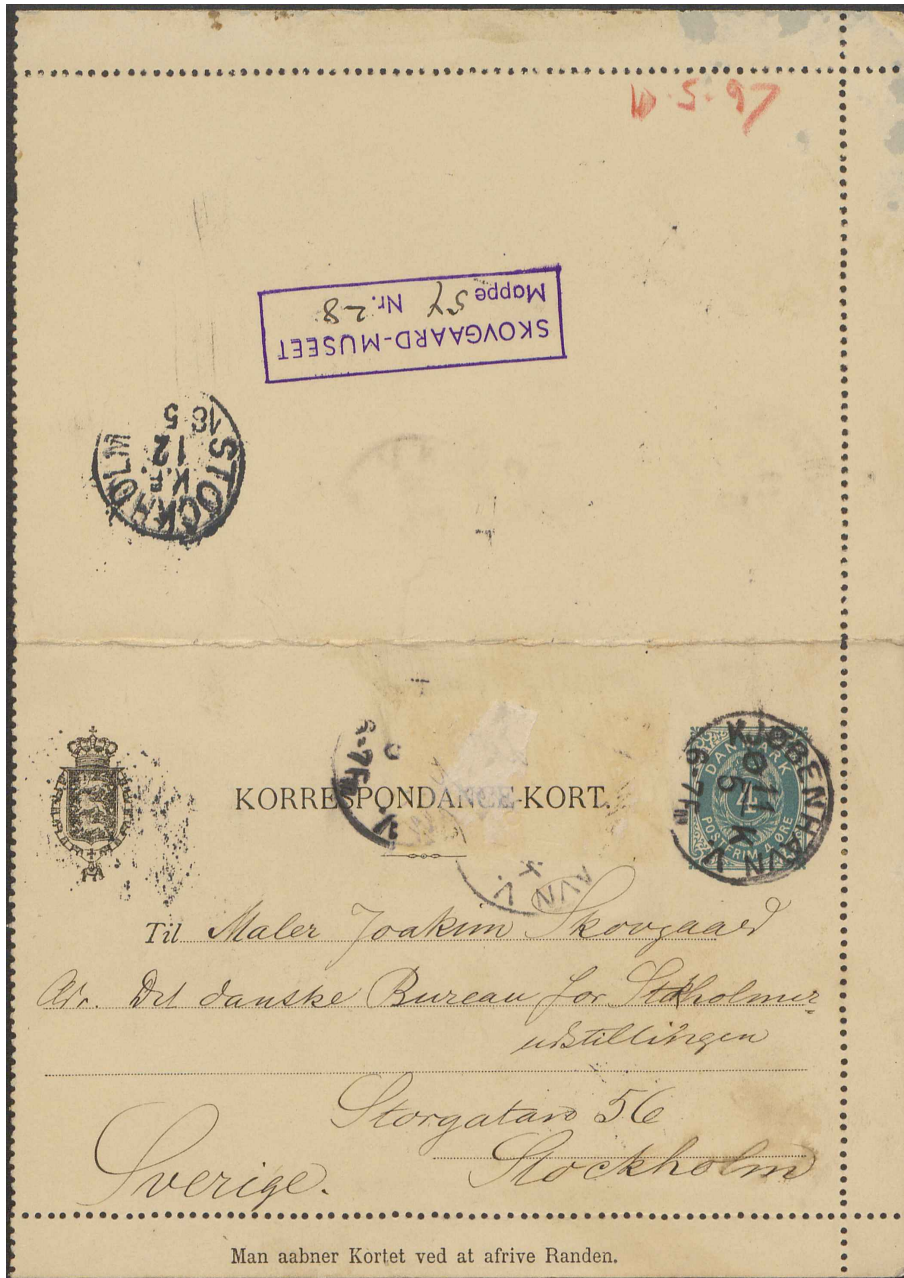 SKOVGAARD-MUSEET
Mappe 57 Nr. 28
STOCKHOLM
12
KORRESPONDANCE-KORT.
DANMARK
4
POSTFRIM. 4 ØRE
KJØBENHAVN
11
5
K
V
6-7 Fm
Til Maler Joakim Skovgaard
Adr. Det danske Bureau for Stokholmer-
udstillingen
Storgatan 56
Stockholm
Sverige.
Man aabner Kortet ved at afrive Randen.